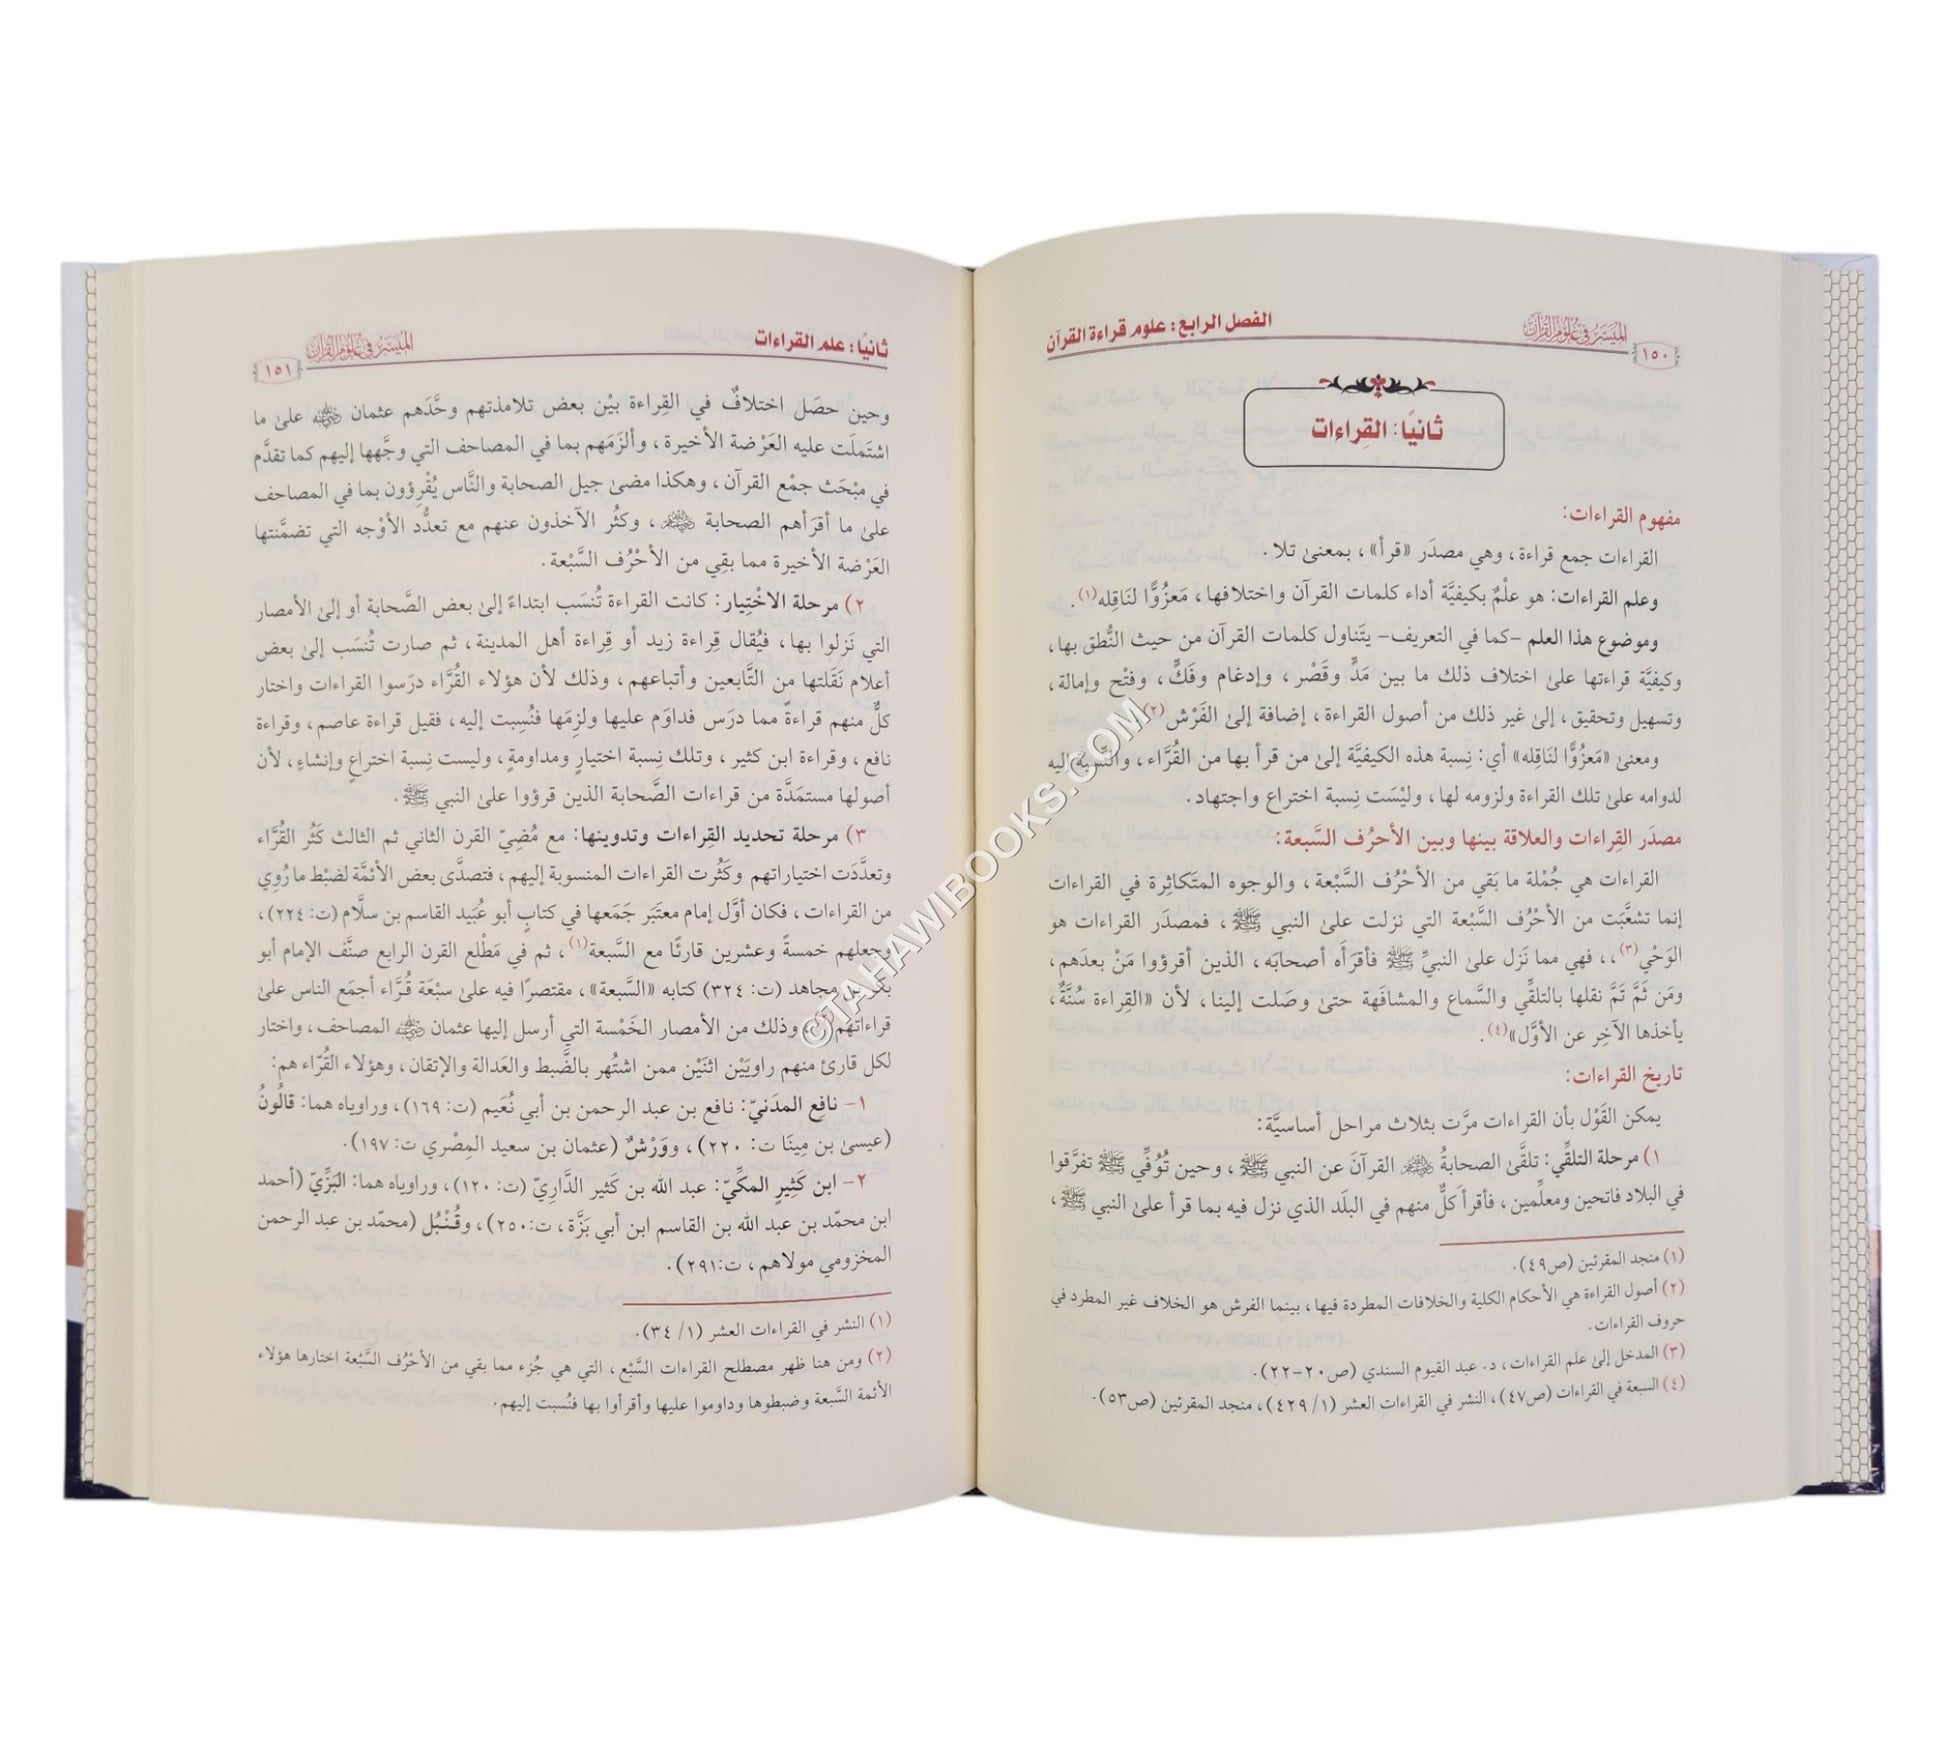 الميسر في علوم القرآن
١٥٠
الفصل الرابع: علوم قراءة القرآن
ثانيًا: القِراءات
مفهوم القراءات:
القراءات جمع قراءة، وهي مصدَر «قرأ»، بمعنىٰ تلا.
وعلم القراءات: هو علْمٌ بكيفيَّة أداء كلمات القرآن واختلافها، مَعزُوًّا لنَاقِله(١).
وموضوع هذا العلم –كما في التعريف– يتَناول كلمات القرآن من حيث النُّطق بها،
وكيفيَّة قراءتها علىٰ اختلاف ذلك ما بين مَدٍّ وقَصْر، وإدغام وفَكٍّ، وفتْح وإمالة،
وتسهيل وتحقيق، إلىٰ غير ذلك من أصول القراءة، إضافة إلىٰ الفَرْش(٢)
ومعنىٰ «مَعزُوًّا لنَاقِله» أي: نِسبة هذه الكيفيَّة إلىٰ من قرأ بها من القُرَّاء، والنِّسبة إليه
لدوامه علىٰ تلك القراءة ولزومه لها، وليْسَت نِسبة اختراع واجتهاد.
مصدَر القِراءات والعلاقة بينها وبين الأحرُف السَّبعة:
القراءات هي جُمْلة ما بَقي من الأحْرُف السَّبْعة، والوجوه المتَكاثِرة في القراءات
إنما تشعَّبَت من الأحْرُف السَّبْعة التي نزلت علىٰ النبي ﷺ، فمصدَر القراءات هو
الوَحْي(٣)،، فهي مما نَزل علىٰ النبيِّ ﷺ فأقرَأه أصحابَه، الذين أقرؤوا مَنْ بعدَهم،
ومَن ثَمَّ تَمَّ نقلها بالتلقِّي والسَّماع والمشافَهة حتىٰ وصَلت إلينا، لأن «القِراءة سُنَّةٌ،
يأخذها الآخِر عن الأوَّل»(٤).
تاريخ القراءات:
يمكن القَوْل بأن القراءات مرَّت بثلاث مراحل أساسيَّة:
١) مرحلة التلقِّي: تلقَّىٰ الصحابةُ ﵃ القرآنَ عن النبي ﷺ، وحين تُوُفِّي ﷺ تفرَّقوا
في البلاد فاتحين ومعلِّمين، فأقرأ كلٌّ منهم في البلَد الذي نزل فيه بما قرأ علىٰ النبي ﷺ،
(١) منجد المقرئين (ص٤٩).
(٢) أصول القراءة هي الأحكام الكلية والخلافات المطردة فيها، بينما الفرش هو الخلاف غير المطرد في
حروف القراءات.
(٣) المدخل إلىٰ علم القراءات، د. عبد القيوم السندي (ص٢٠-٢٢).
(٤) السبعة في القراءات (ص٤٧)، النشر في القراءات العشر (١/ ٤٢٩)، منجد المقرئين (ص٥٣).
ثانيًا: علم القراءات
الميسر في علوم القرآن
١٥١
وحين حصَل اختلافٌ في القِراءة بيْن بعض تلامذتهم وحَّدَهم عثمان ﵁ علىٰ ما
اشتَملَت عليه العَرْضة الأخيرة، وألزَمَهم بما في المصاحف التي وجَّهها إليهم كما تقدَّم
في مبْحَث جمْع القرآن، وهكذا مضىٰ جيل الصحابة والنَّاس يُقْرِؤون بما في المصاحف
علىٰ ما أقرَأهم الصحابة ﵃، وكثُر الآخذون عنهم مع تعدُّد الأوْجه التي تضمَّنتها
العَرْضة الأخيرة مما بقِي من الأحْرُف السَّبْعة.
٢) مرحلة الاخْتِيار: كانت القراءة تُنسَب ابتداءً إلىٰ بعض الصَّحابة أو إلىٰ الأمصار
التي نَزلوا بها، فيُقال قِراءة زيد أو قِراءة أهل المدينة، ثم صارت تُنسَب إلىٰ بعض
أعلام نَقَلتها من التَّابعين وأتباعهم، وذلك لأن هؤلاء القُرَّاء درَسوا القراءات واختار
كلٌّ منهم قراءةً مما درَس فداوَم عليها ولزِمَها فنُسِبت إليه، فقيل قراءة عاصم، وقراءة
نافع، وقراءة ابن كثير، وتلك نِسبة اختيارٍ ومداومةٍ، وليست نِسبة اختراعٍ وإنشاءٍ، لأن
أصولها مستمَدَّة من قراءات الصَّحابة الذين قرؤوا علىٰ النبي ﷺ.
٣) مرحلة تحديد القِراءات وتدوينها: مع مُضِيّ القرن الثاني ثم الثالث كَثُر القُرَّاء
وتعدَّدَت اختياراتهم وكَثُرت القراءات المنسوبة إليهم، فتصدَّى بعض الأئمَّة لضبْط ما رُوِي
من القراءات، فكان أوَّل إمام معتبَر جَمَعها في كتابٍ أبو عُبَيد القاسم بن سلَّام (ت: ٢٢٤)،
وجعلهم خمسةً وعشرين قارئًا مع السَّبعة(١)، ثم في مَطْلع القرن الرابع صنَّف الإمام أبو
بكر بن مجاهد (ت: ٣٢٤) كتابه «السَّبعة»، مقتصرًا فيه علىٰ سبْعَة قُرَّاء أجمَع الناس علىٰ
قراءاتهم، وذلك من الأمصار الخَمْسة التي أرسل إليها عثمان ﵁ المصاحف، واختار
لكل قارئ منهم راويَيْن اثنَيْن ممن اشتُهر بالضَّبط والعَدالة والإتقان، وهؤلاء القُرّاء هم:
١- نافع المدَنيّ: نافع بن عبد الرحمن بن أبي نُعَيم (ت: ١٦٩)، وراوياه هما: قالُونُ
(عيسىٰ بن مِينَا ت: ٢٢٠)، ووَرْشٌ (عثمان بن سعيد المِصْري ت: ١٩٧).
٢- ابن كَثِيرٍ المكِّيّ: عبد الله بن كَثير الدَّاريّ (ت: ١٢٠)، وراوياه هما: البَزِّيّ (أحمد
ابن محمّد بن عبد الله بن القاسم ابن أبي بَزَّة، ت:٢٥٠)، وقُنْبُل (محمّد بن عبد الرحمن
المخزومي مولاهم، ت:٢٩١).
(١) النشر في القراءات العشر (١/ ٣٤).
(٢) ومن هنا ظهر مصطلح القراءات السَّبْع، التي هي جُزء مما بقي من الأحْرُف السَّبْعة اختارها هؤلاء
الأئمة السَّبعة وضبطوها وداوموا عليها وأقرأوا بها فنُسبت إليهم.
©TAHAWIBOOKS.COM